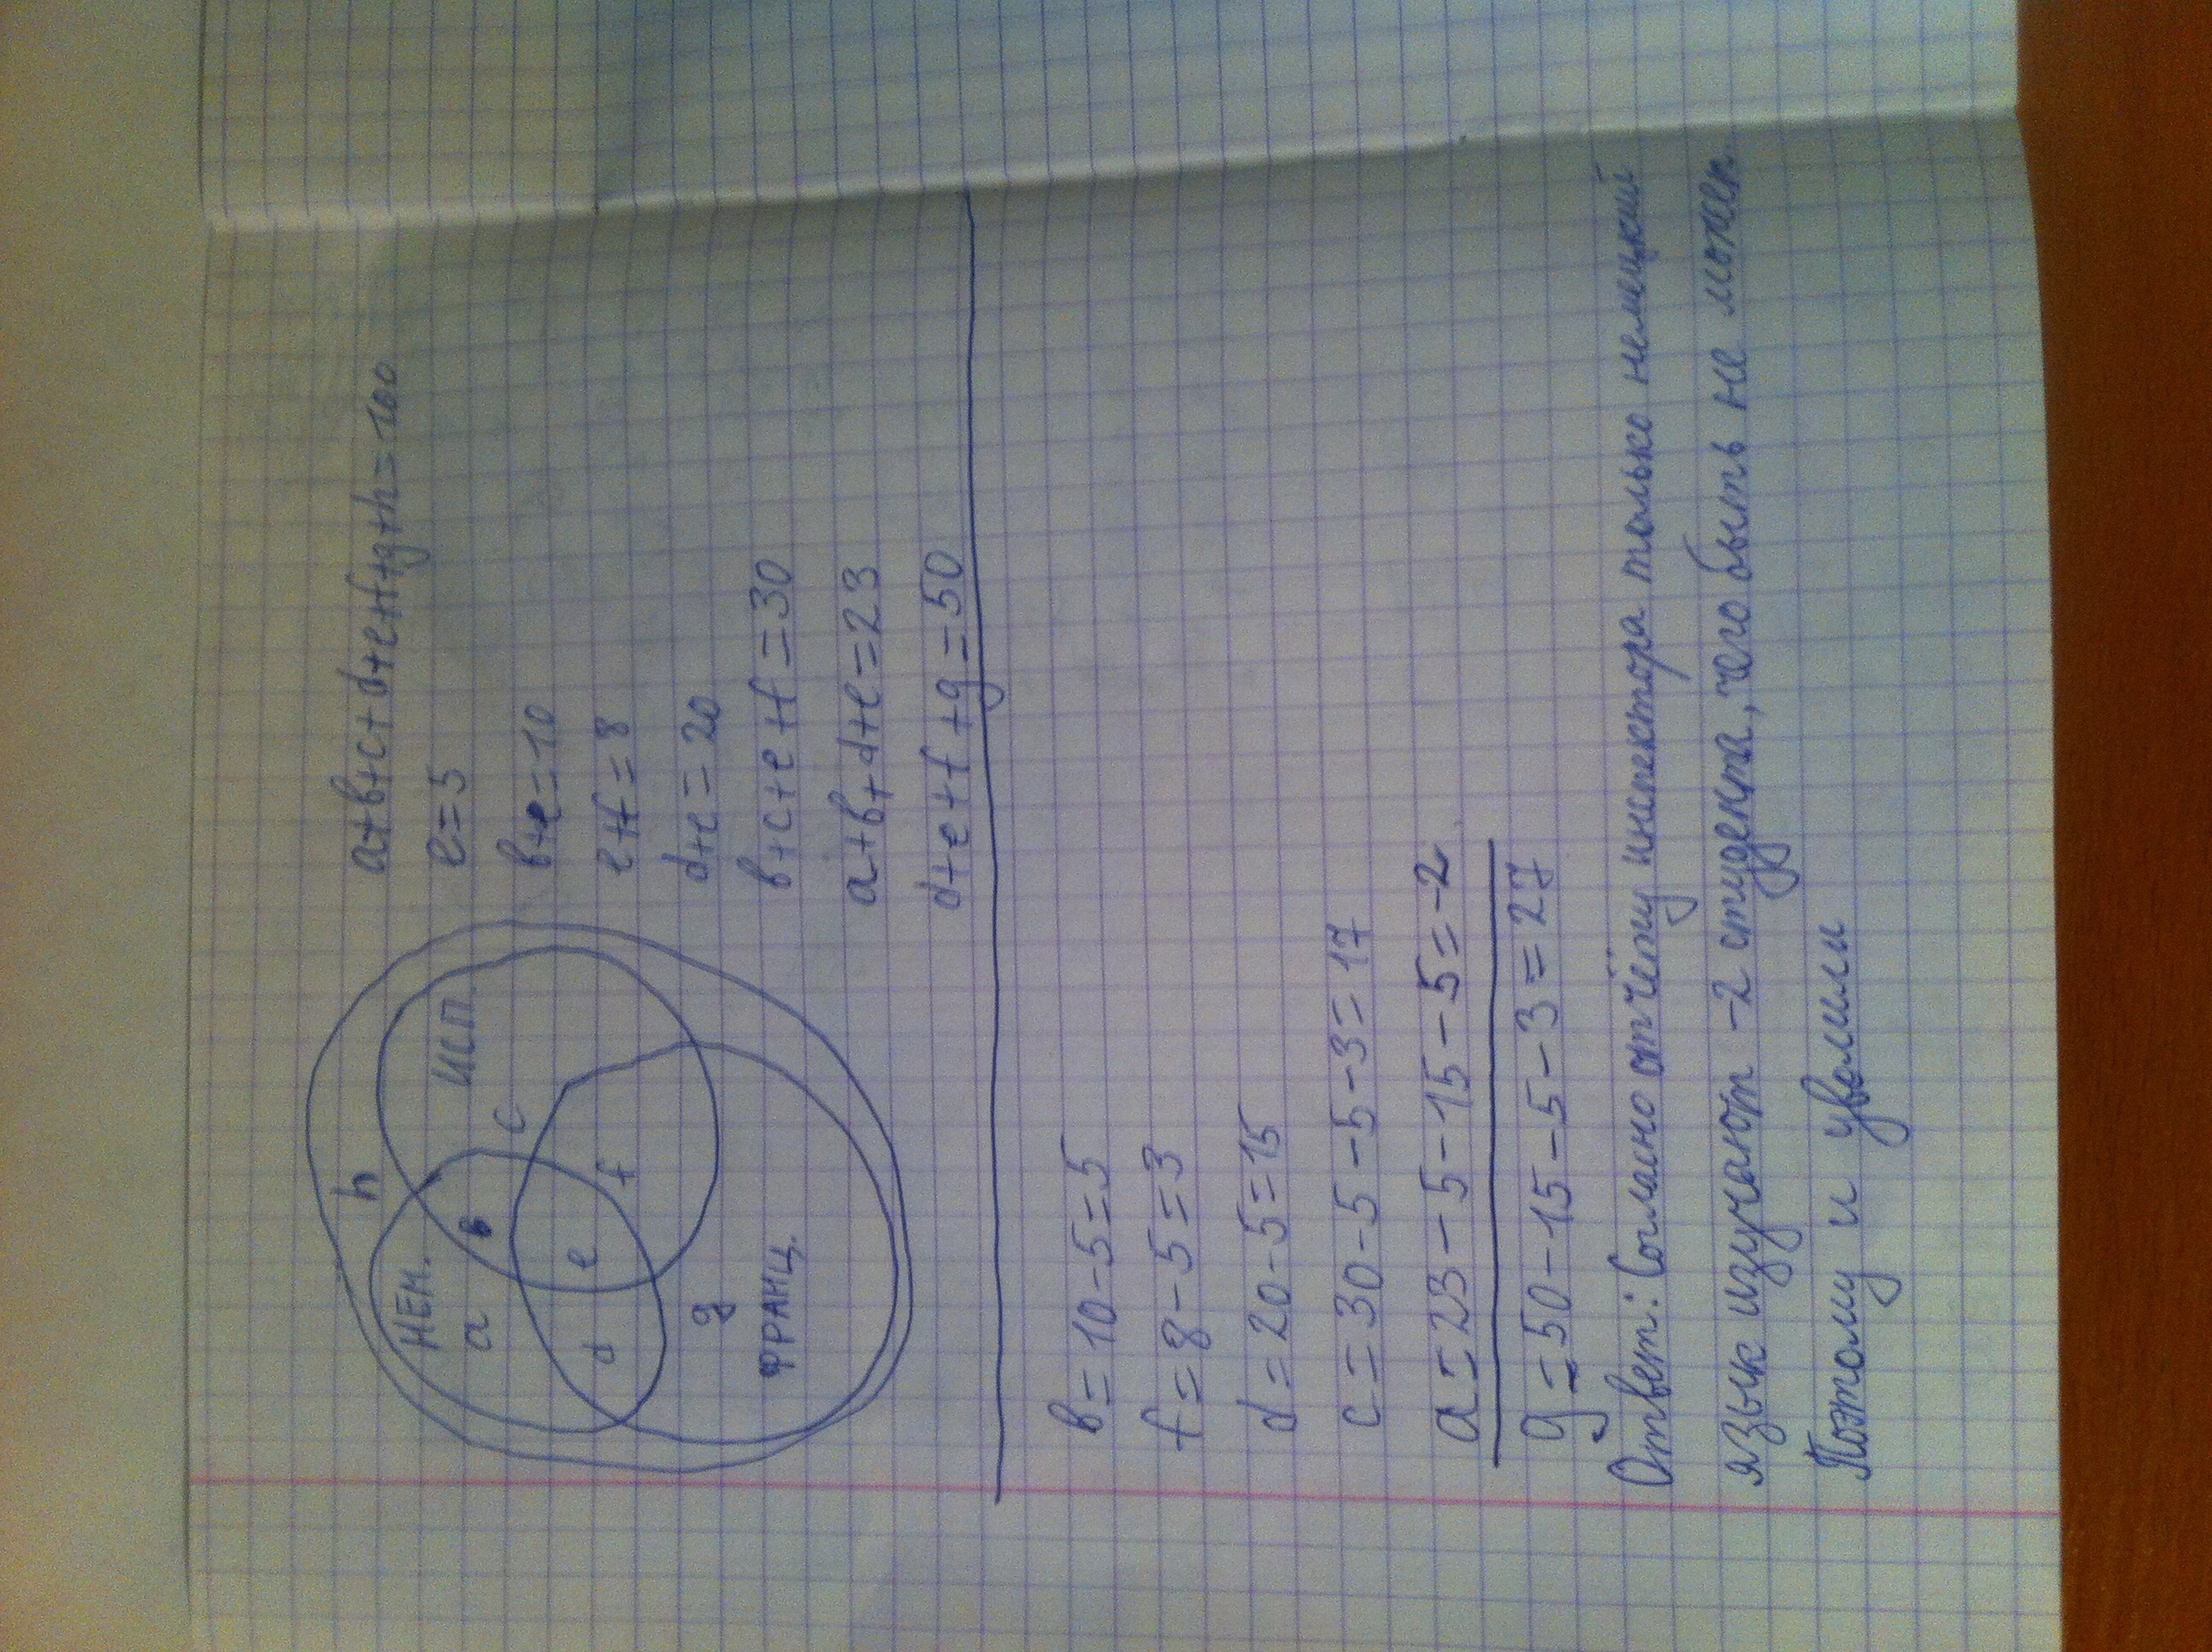 h
НЕМ.
ИСП.
a
в
c
d
e
f
g
ФРАНЦ.
a+в+c+d+e+f+g+h=100
e=5
в+e=10
e+f=8
d+e=20
в+c+e+f=30
a+в+d+e=23
d+e+f+g=50
в=10-5=5
f=8-5=3
d=20-5=15
c=30-5-5-3=17
a=23-5-15-5=-2
g=50-15-5-3=27
Ответ: Согласно отчёту инспектора только немецкий
язык изучают -2 студента, чего быть не может.
Поэтому и уволили